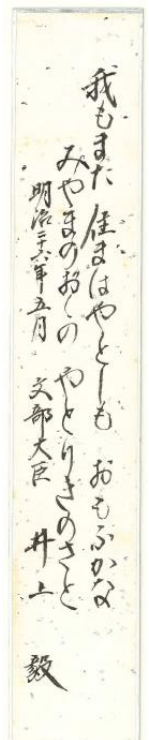 我もまた 住まはやとしも おもふかな
みやまのおくの やとりきのさと
明治二十六年五月 文部大臣 井上 毅